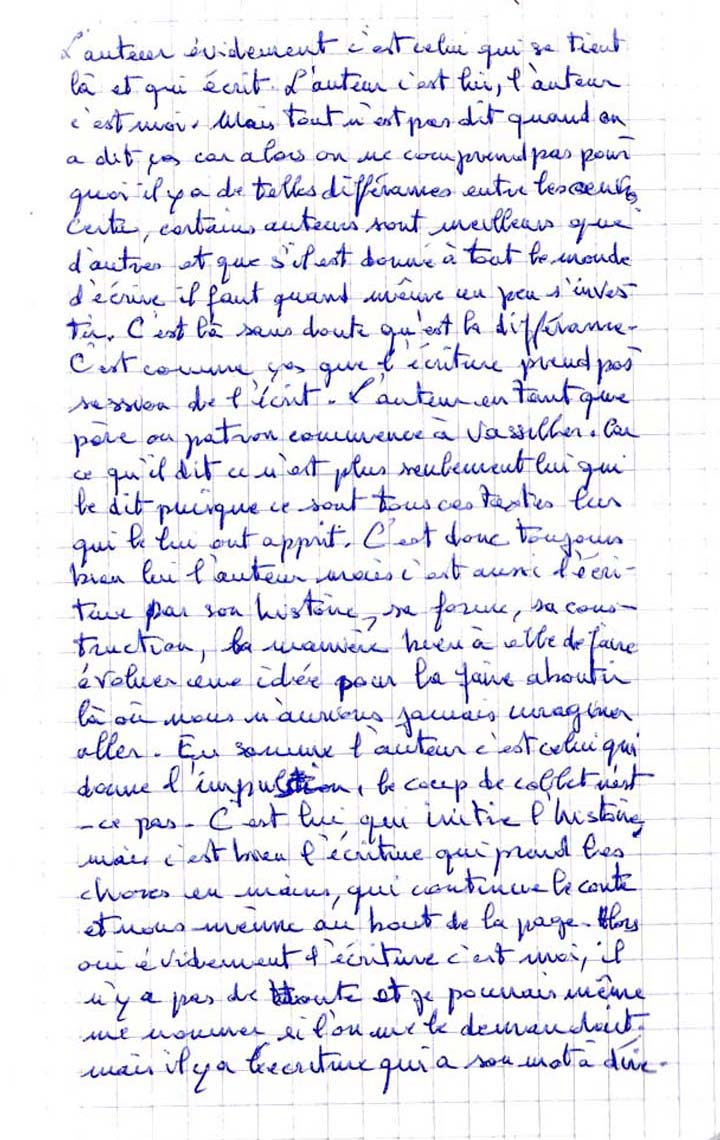 L'auteur évidement c'est celui qui se tient
là et qui écrit. L'auteur c'est lui, l'auteur
c'est moi. Mais tout n'est pas dit quand on
a dit ças car alors on ne comprend pas pour
quoi il y a de telles différances entre les
Certe, certains auteurs sont meilleurs que
d'autres et que s'il est donné à tout le monde
d'écrire il faut quand même un peu s'inves-
tir. C'est là sans doute qu'est la différance.
C'est comme ças que l'écriture prend pos
session de l'écrit. L'auteur en tant que
père ou patron commence à vassiller. Car
ce qu'il dit ce n'est plus seulement lui qui
le dit puisque ce sont tous ces textes lus
qui le lui ont apprit. C'est donc toujours
bien lui l'auteur mais c'est aussi l'écri-
ture par son histoire, sa forme, sa cons-
truction, la manière bien à elle de faire
évoluer une idée pour la faire aboutir
là où nous n'aurions jamais imaginer
aller. En somme l'auteur c'est celui qui
donne l'impulstion, le coup de collet n'est
-ce pas. C'est lui qui initie l'histoire,
mais c'est bien l'écriture qui prend les
choses en mains, qui continue le conte
et nous mènne au bout de la page. Alors
oui évidement l'écriture c'est moi, il
n'y a pas de doute et je pourrais même
me nommer si l'on me le demandait.
mais il y a l'écriture qui a son mot à dire.